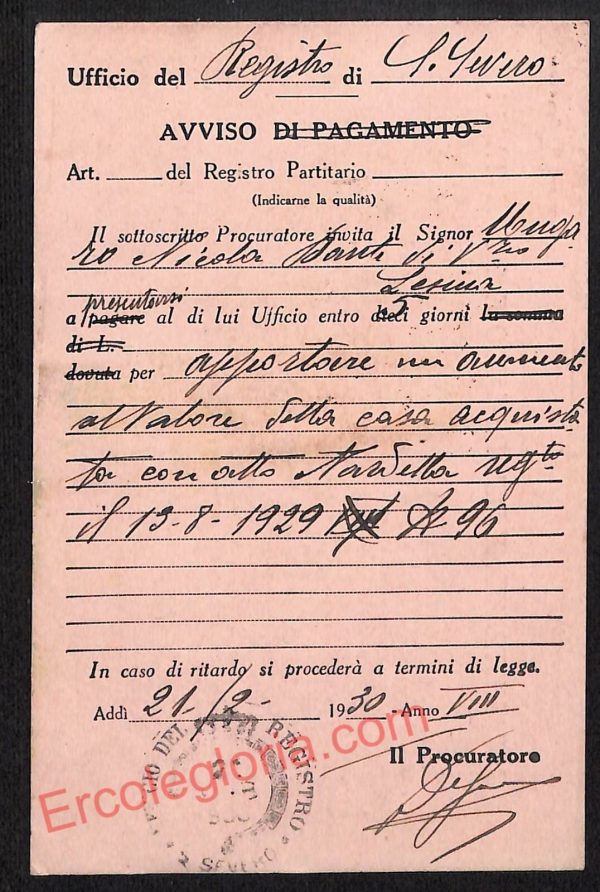 Ufficio del Registro di S. Severo
AVVISO DI PAGAMENTO
Art. del Registro Partitario
(Indicarne la qualità)
Il sottoscritto Procuratore invita il Signor
ro Nicola Dante di V.zo
Lesina
presentarsi 5
a pagare al di lui Ufficio entro dieci giorni la somma
di L.
dovuta per apportare un aumento
al valore della casa acquista-
ta con atto Nardella reg.to
il 13-8-1929 N 96
In caso di ritardo si procederà a termini di legge.
Addì 21-2- 1930 - Anno VIII
Il Procuratore
UFFICIO DEL REGISTRO * S. SEVERO *
Ercolegloria.com